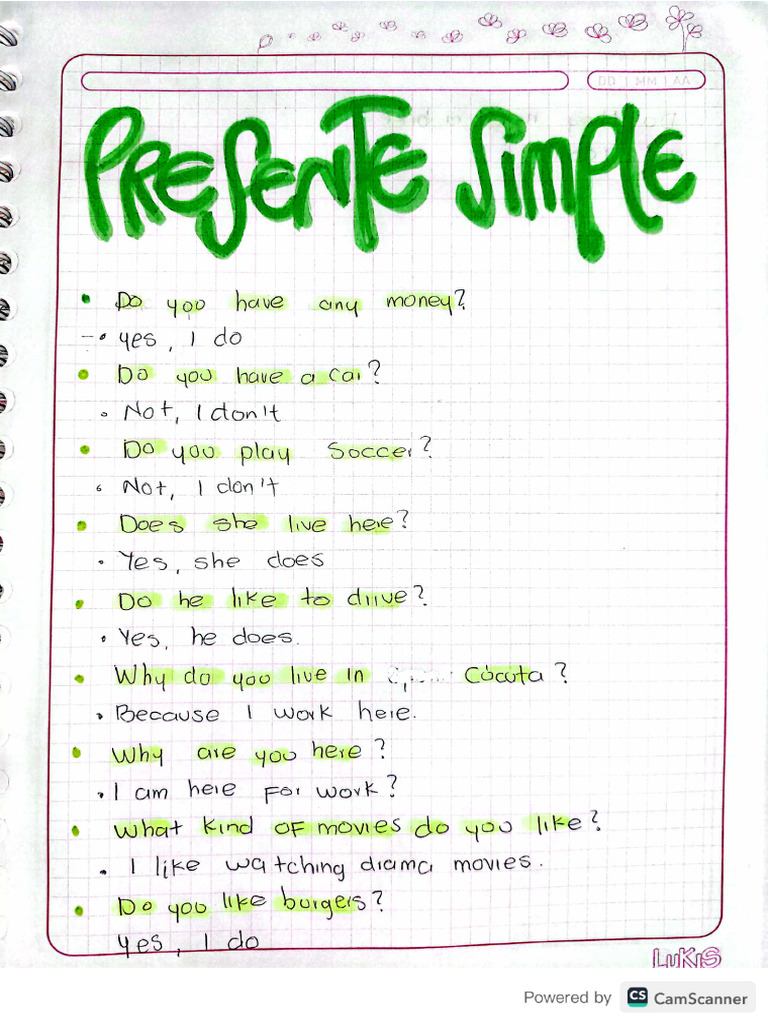 DD | MM | AA
PRESENTE SIMPLE
• Do you have any money?
-• yes, I do
• Do you have a car?
• Not, I don't
• Do you play soccer?
• Not, I don't
• Does she live here?
• Yes, she does
• Do he like to drive?
• Yes, he does.
• Why do you live in Cúcuta?
• Because I work here.
• Why are you here?
• I am here for work?
• What kind of movies do you like?
• I like watching drama movies.
• Do you like burgers?
yes, I do
LUKIS
Powered by CS CamScanner